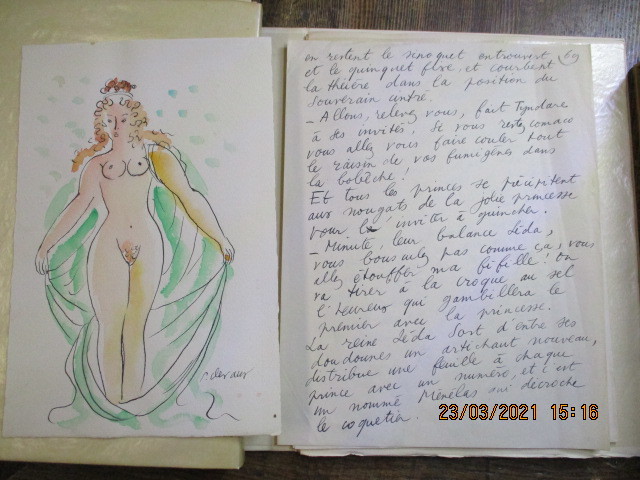 P. Clervaux
en restent le sinoquet entrouvert 69
et le quinquet fixe et courbent
la théière dans la position du
souverain cintré.
- Allons, relevez-vous, fait Tyndare
à ses invités. Si vous restez comace
vous allez vous faire couler tout
le raisin de vos fumigènes dans
la bobèche !
Et tous les princes se précipitent
aux nougats de la jolie princesse
pour l' inviter à guincher.
- Minute, leur balance Léda,
vous bousculez pas comme ça, vous
allez étouffer ma bifille ! On
va tirer à la croque au sel
l'heureux qui gambillera le
premier avec la princesse.
La reine Léda sort d'entre ses
doudounes un artichaut nouveau,
distribue une feuille à chaque
prince avec un numéro, et c'est
un nommé Ménélas qui décroche
le coquetier.
23/03/2021 15:16